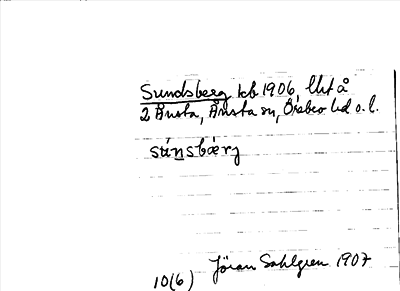 Sundsberg kb 1906, lht å
2 Ånsta, Ånsta sn, Örebro hd o. l.
súnsbǽrj
10(6) Jöran Sahlgren 1907